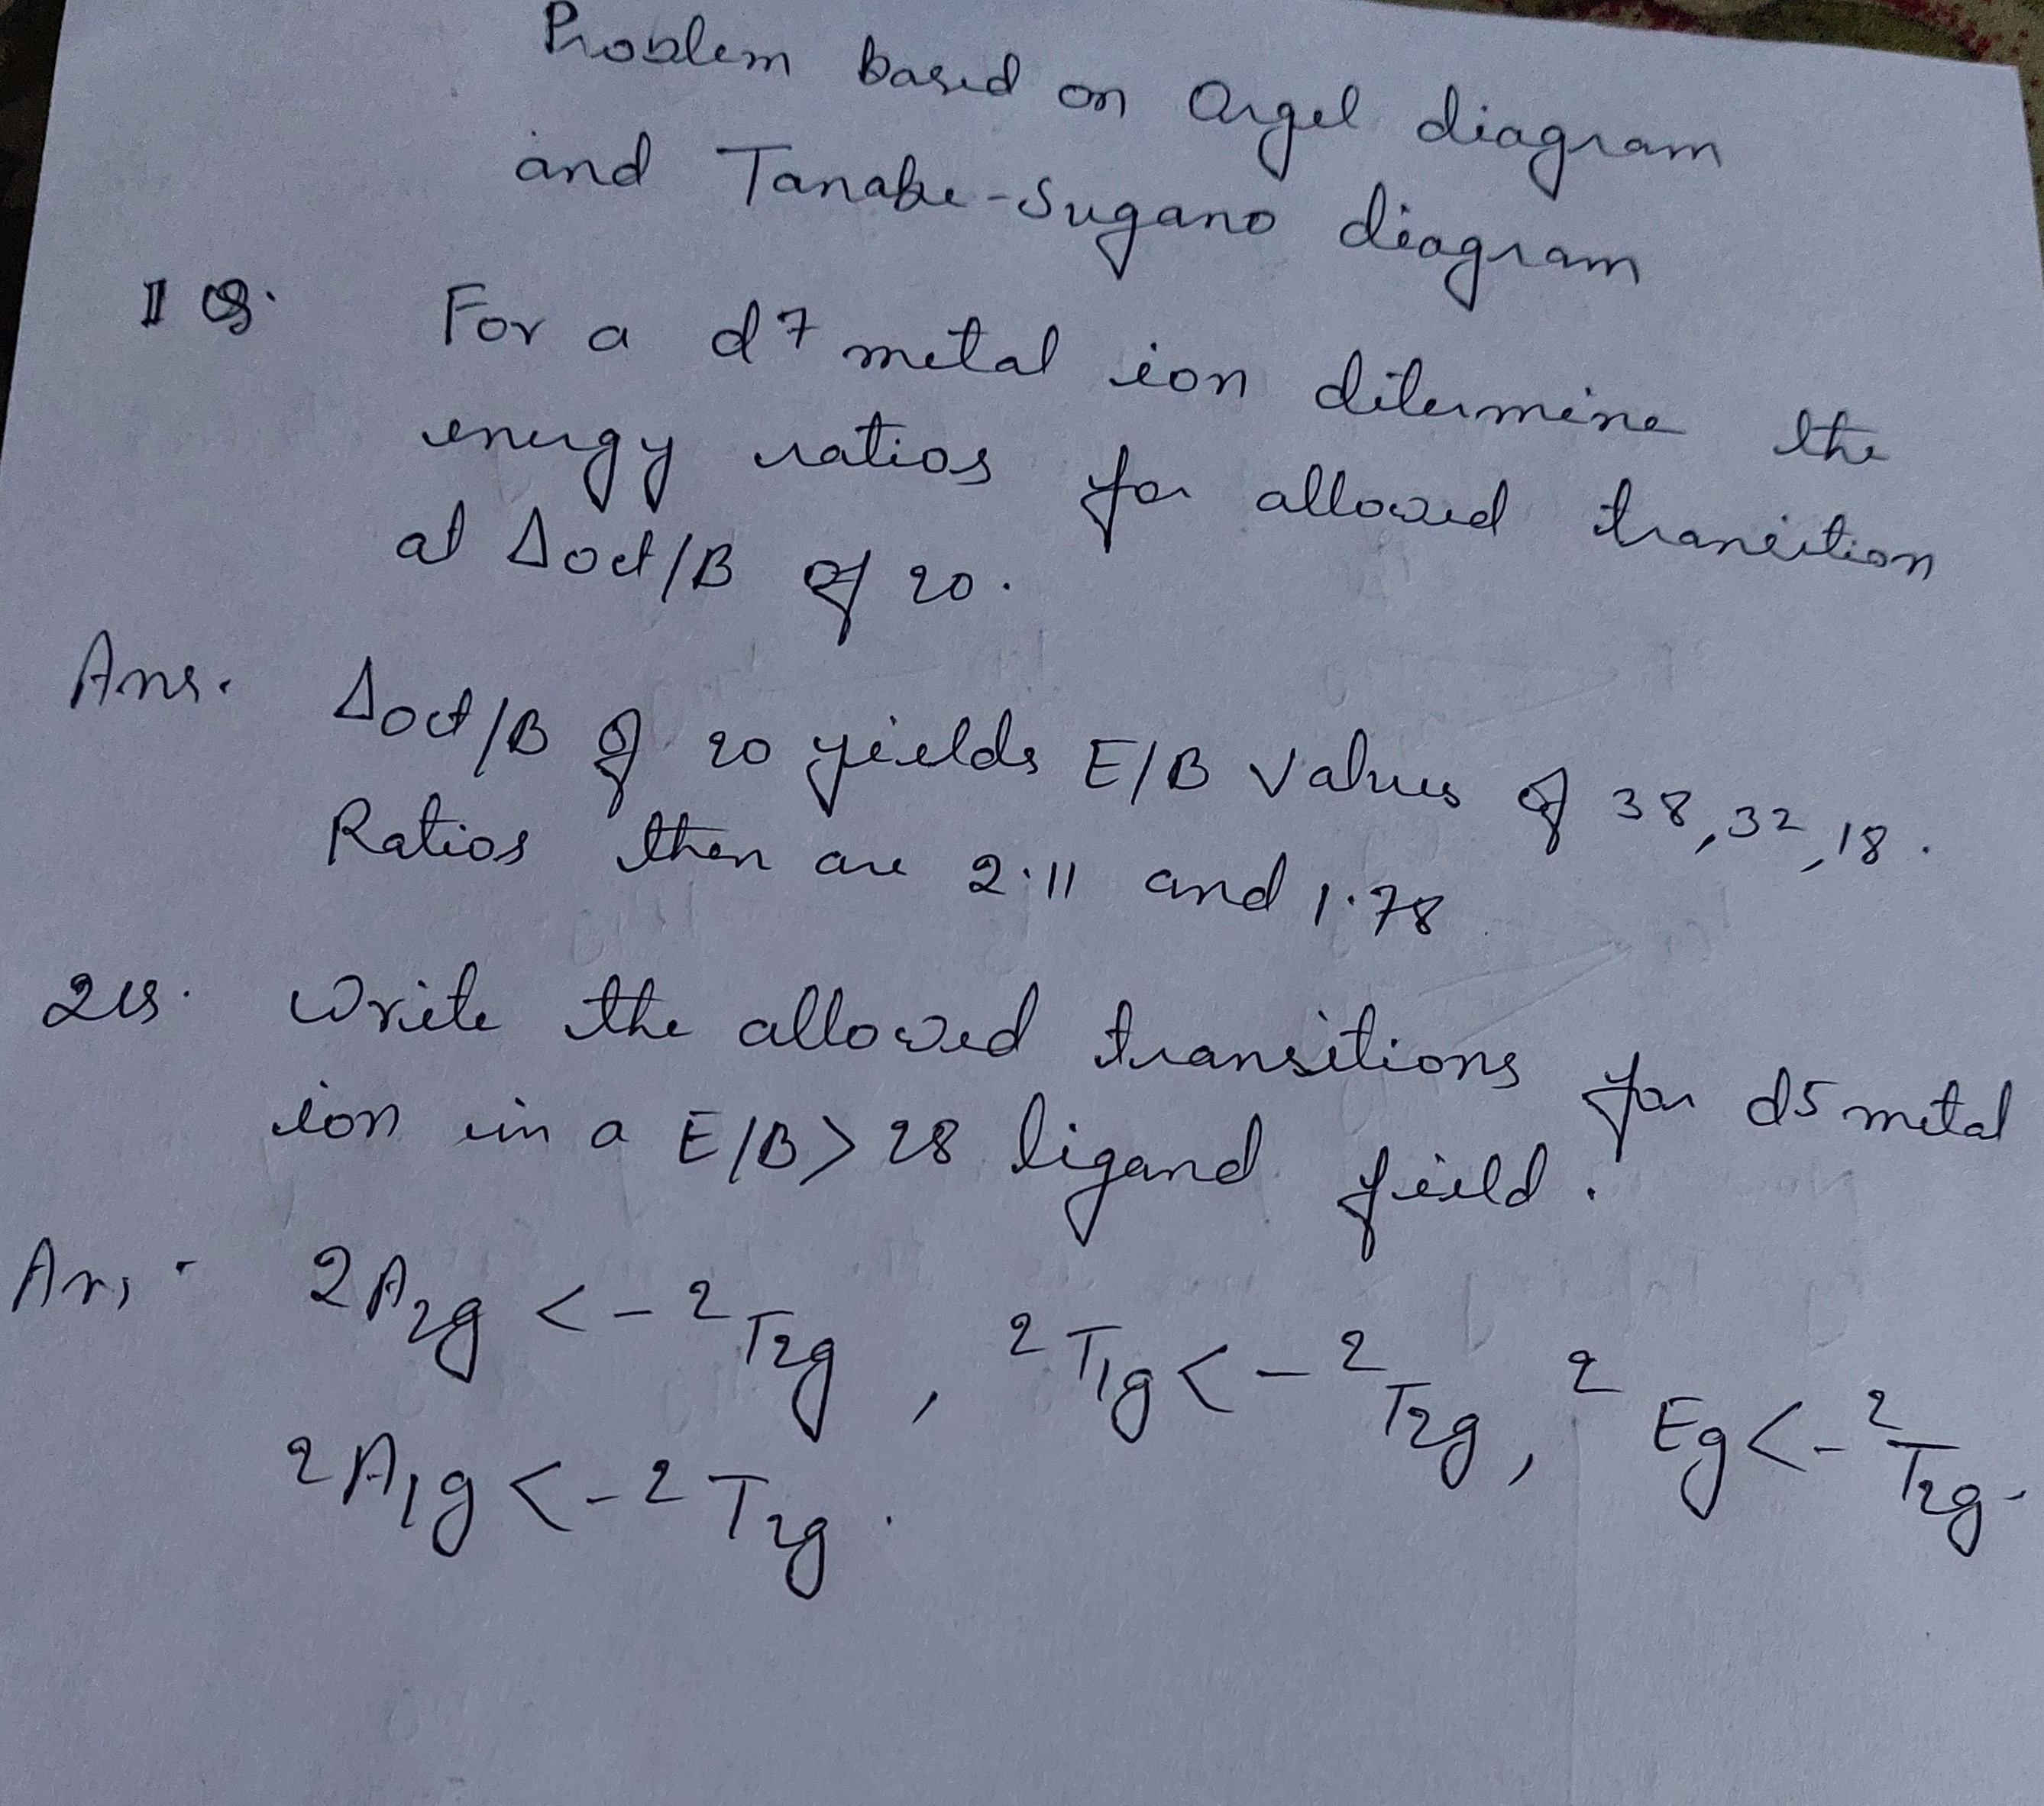 Problem based on Orgel diagram
and Tanabe-Sugano diagram
1 Q. For a d7 metal ion ditermine the
energy ratios for allowed transition
at Δoct/B of 20.
Ans. Δoct/B of 20 yields E/B values of 38,32,18.
Ratios then are 2.11 and 1.78
2Q. Write the allowed transitions for d5 metal
ion in a E/B> 28 ligand field.
Ans. 2A2g <- 2T2g, 2T1g <- 2T2g, 2Eg <- 2T2g.
2A1g <- 2T2g.